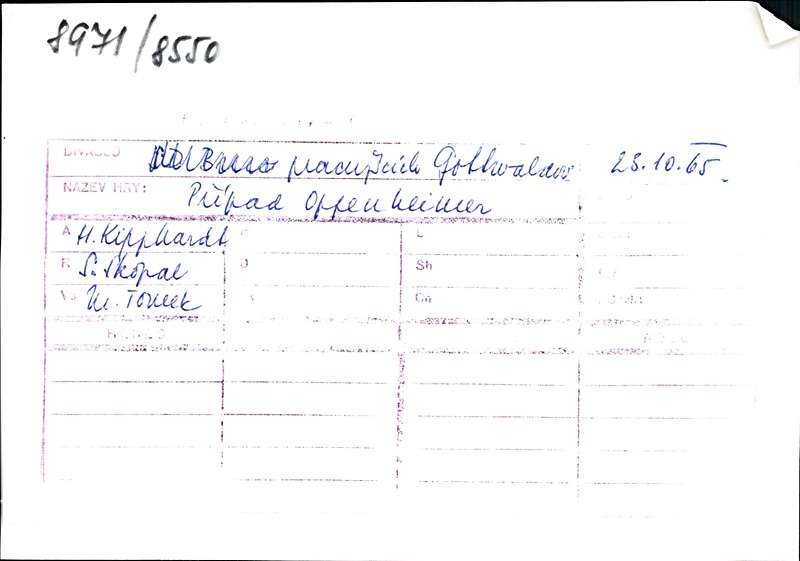 8971/8550
DIVADLO pracujících Gottwaldov 23.10.65.
NÁZEV HRY: Případ Oppenheimer
A H. Kipphardt L
R S. Skopal D Sh
V. M. Tomek Ch